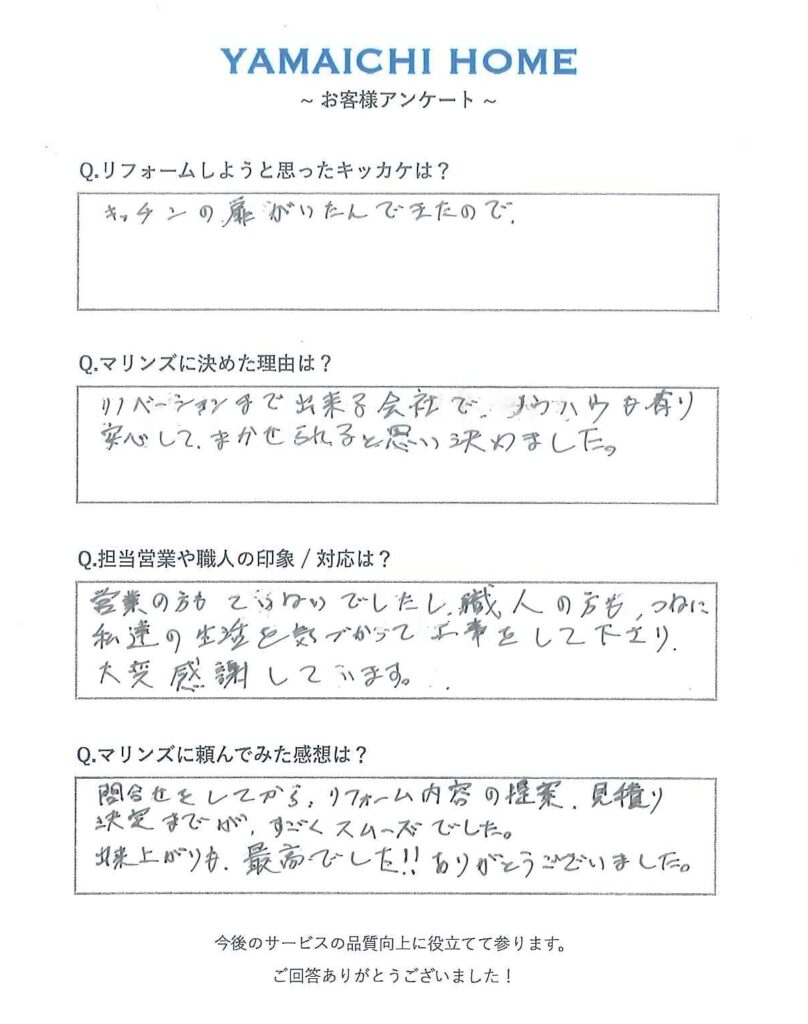 YAMAICHI HOME
~ お客様アンケート ~
Q.リフォームしようと思ったキッカケは？
キッチンの扉がいたんできたので、
Q.マリンズに決めた理由は？
リノベーションまで出来る会社で、ノウハウも有り
安心して、まかせられると思い決めました。
Q.担当営業や職人の印象 / 対応は？
営業の方もていねいでしたし、職人の方も、つねに
私達の生活を気づかって工事をして下さり、
大変感謝しています。
Q.マリンズに頼んでみた感想は？
問合せをしてから、リフォーム内容の提案、見積り
決定までが、すごくスムーズでした。
出来上がりも、最高でした!! ありがとうございました。
今後のサービスの品質向上に役立てて参ります。
ご回答ありがとうございました！